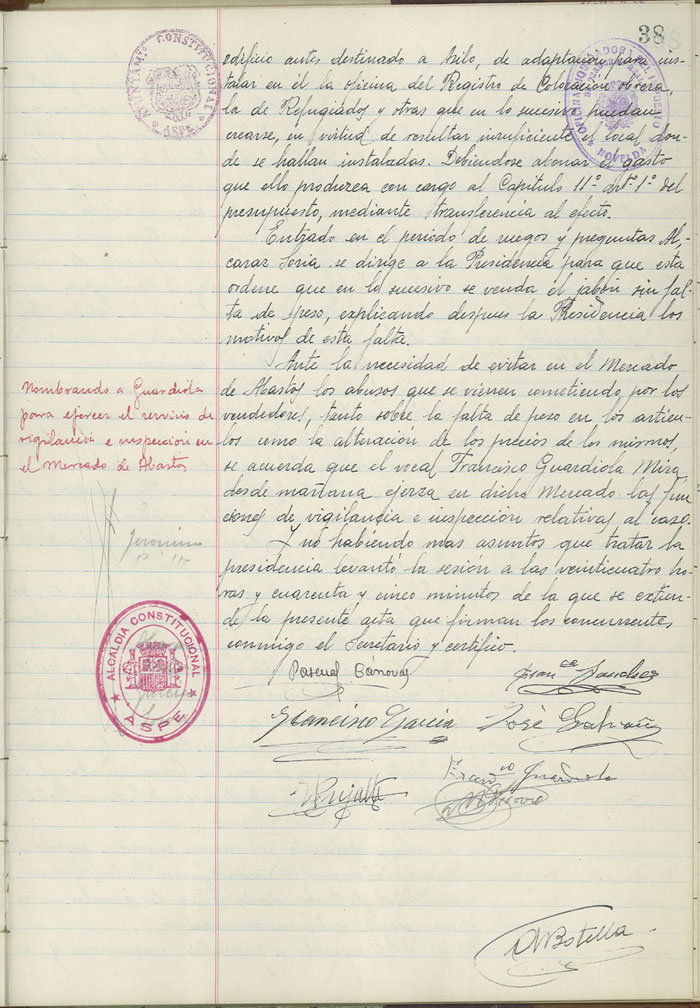 38
AYUNTAMTO CONSTITUCIONAL
ASPE
OFICINA LIQUIDADORA DEL IMPUESTO
NOVELDA
edificio antes destinado a Asilo, de adaptacion para ins-
talar en él la oficina del Registro de Colocación obrera,
la de Refugiados y otras que en lo sucesivo puedan
crearse, en virtud de resultar insuficiente el local don-
de se hallan instaladas. Debiendose abonar el gasto
que ello produzca con cargo al Capitulo 11º artº 1º del
presupuesto, mediante transferencia al efecto.
Entrado en el periodo de ruegos y preguntas Al-
carar Soria se dirige a la Presidencia para que esta
ordene que en lo sucesivo se venda el jabón sin fal-
ta de peso, explicando despues la Presidencia los
motivos de esta falta.
Ante la necesidad de evitar en el Mercado
de Abastos los abusos que se vienen cometiendo por los
vendedores, tanto sobre la falta de peso en los articu-
los como la alteración de los precios de los mismos,
se acuerda que el vocal Francisco Guardiola Mira,
desde mañana ejerza en dicho Mercado las fun
ciones de vigilancia e inspección relativas al caso.
Y no habiendo mas asuntos que tratar la
presidencia levantó la sesión a las veinticuatro ho-
ras y cuarenta y cinco minutos de la que se extien-
de la presente acta que firman los concurrentes,
conmigo el Secretario y certifico.
Nombrando a Guardiola
para ejercer el servicio de
vigilancia e inspección en
el Mercado de Abastos
Jeronimo
ALCALDIA CONSTITUCIONAL
ASPE
Pascual Cánovas
Franco Sanchez
Francisco Garcia
José Galvañ
Franco Guardiola
A Botella